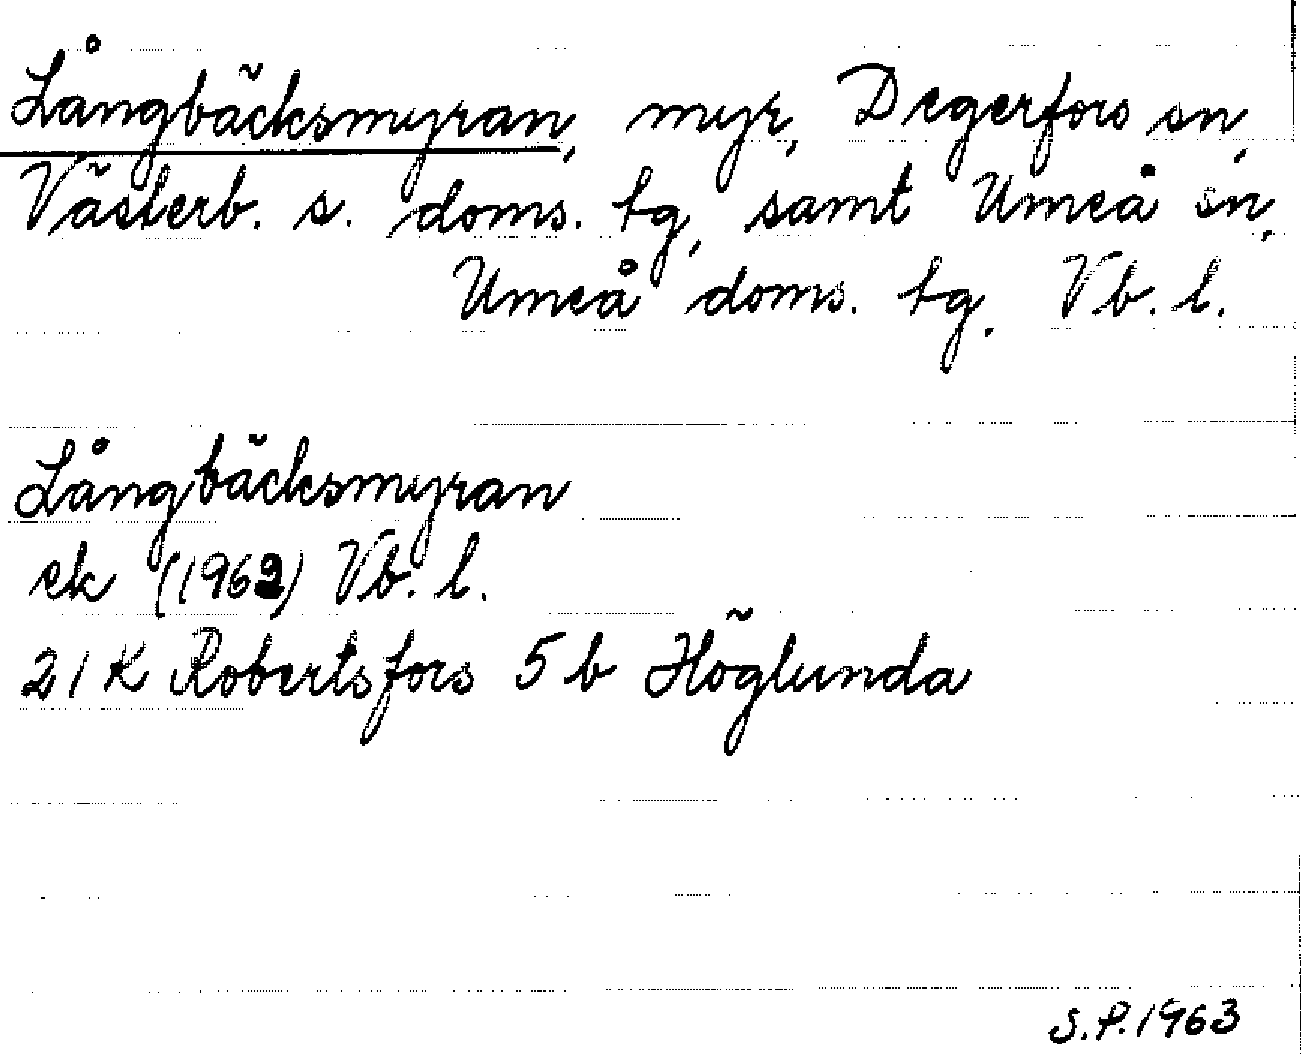 Långbäcksmyran, myr, Degerfors sn,
Västerb. s. doms. tg, samt Umeå sn,
Umeå doms. tg. Vb. l.
Långbäcksmyran
ek (1962) Vb. l.
21K Robertsfors 5b Höglunda
S.P. 1963